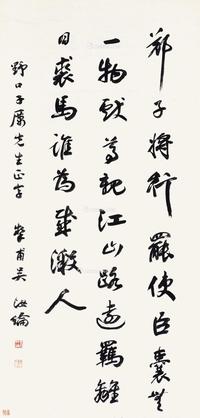 郑子将行罢使臣囊无
一物献尊亲江山路远羁离
日裘马谁为感激人
野口子廉先生正字
挚甫吴汝纶